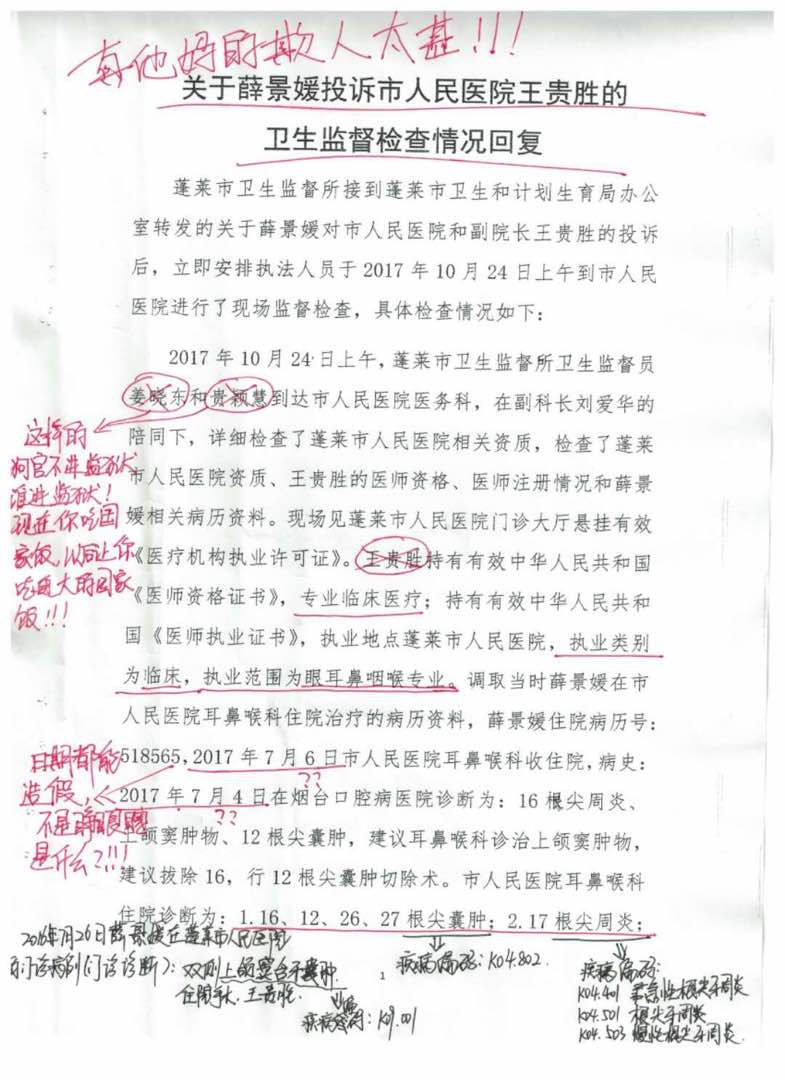 真他妈的欺人太甚!!!
关于薛景媛投诉市人民医院王贵胜的
卫生监督检查情况回复
蓬莱市卫生监督所接到蓬莱市卫生和计划生育局办公
室转发的关于薛景媛对市人民医院和副院长王贵胜的投诉
后，立即安排执法人员于2017年10月24日上午到市人民
医院进行了现场监督检查，具体检查情况如下：
2017年10月24日上午，蓬莱市卫生监督所卫生监督员
姜晓东和贵颖慧到达市人民医院医务科，在副科长刘爱华的
陪同下，详细检查了蓬莱市人民医院相关资质，检查了蓬莱
市人民医院资质、王贵胜的医师资格、医师注册情况和薛景
媛相关病历资料。现场见蓬莱市人民医院门诊大厅悬挂有效
《医疗机构执业许可证》。王贵胜持有有效中华人民共和国
《医师资格证书》，专业临床医疗；持有有效中华人民共和
国《医师执业证书》，执业地点蓬莱市人民医院，执业类别
为临床，执业范围为眼耳鼻咽喉专业。调取当时薛景媛在市
人民医院耳鼻喉科住院治疗的病历资料，薛景媛住院病历号：
518565，2017年7月6日市人民医院耳鼻喉科收住院，病史：
2017年7月4日在烟台口腔病医院诊断为：16根尖周炎、
上颌窦肿物、12根尖囊肿，建议耳鼻喉科诊治上颌窦肿物，
建议拔除16，行12根尖囊肿切除术。市人民医院耳鼻喉科
住院诊断为：1.16、12、26、27根尖囊肿；2.17根尖周炎；
这样的
狗官不进监狱
谁进监狱!
现在你吃国
家饭，以后让你
吃更大的国家
饭!!!
日期都能
造假，
不是瞎眼
是什么?!!!
??
??
2016年7月26日薛景媛在蓬莱市人民医院
门诊病例(门诊诊断)：双侧上颌窦含牙囊肿
住院手术 王贵胜
疾病编码：K09.001
疾病编码：K04.802
疾病编码：
K04.401 某急性根尖牙周炎
K04.501 根尖牙周炎
K04.503 慢性根尖牙周炎
1